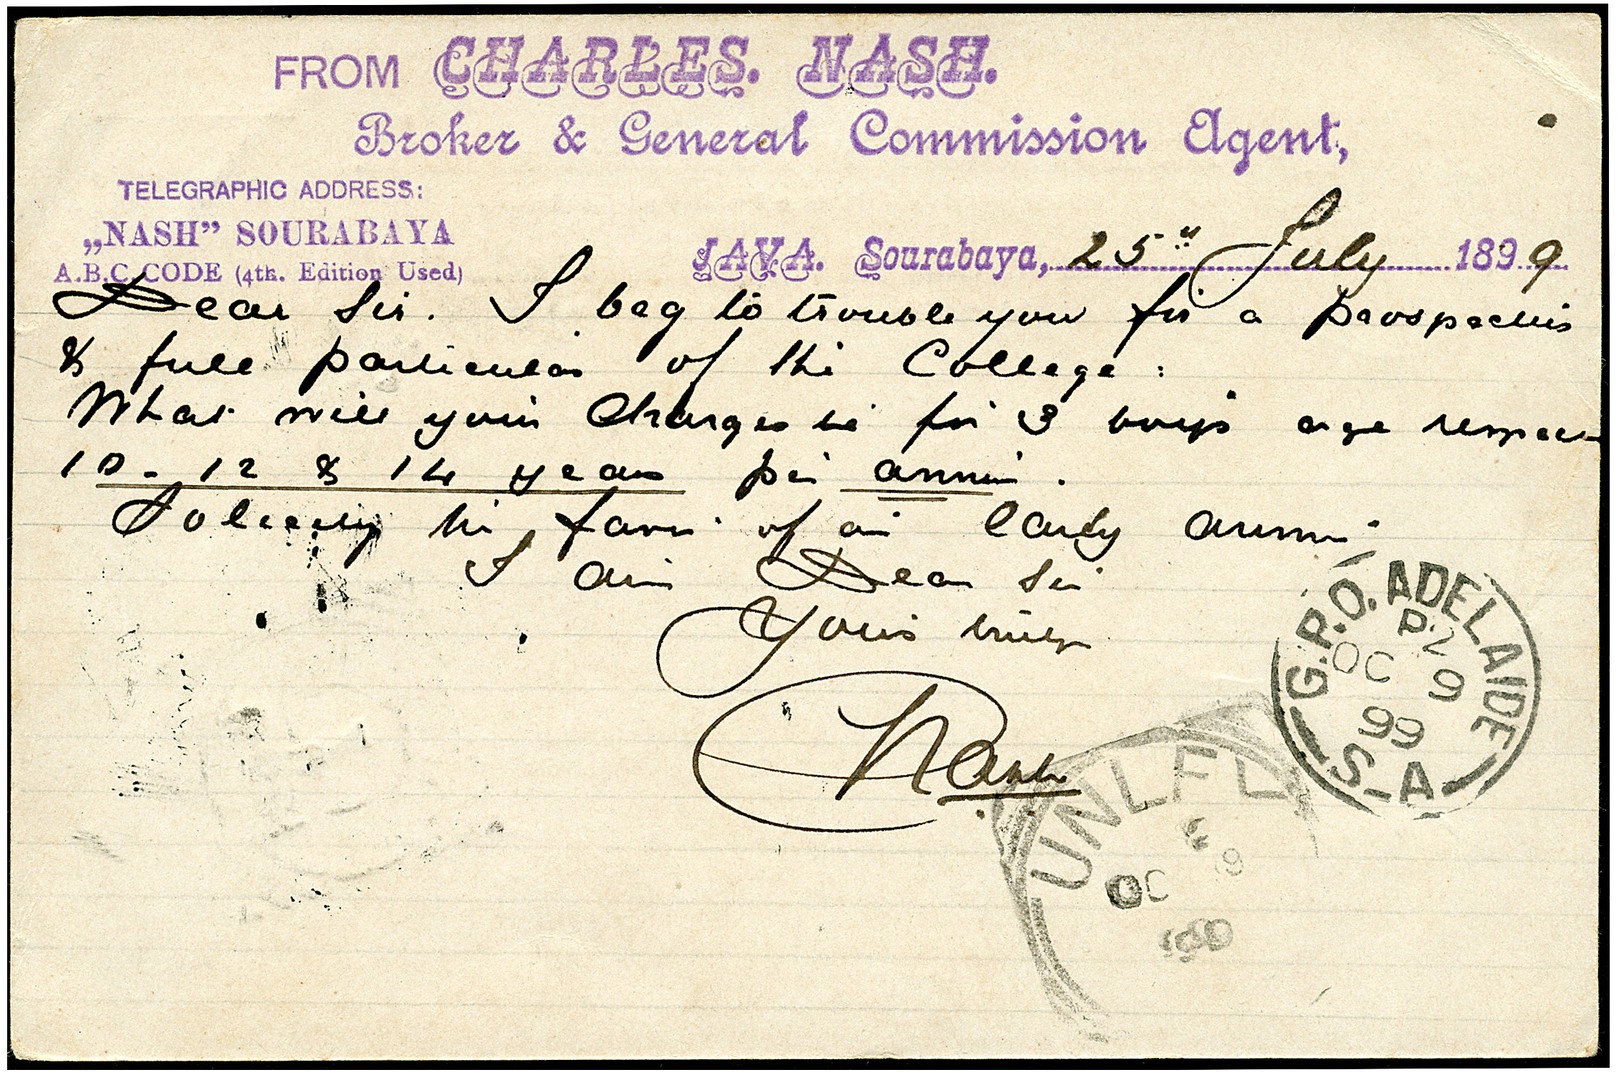 FROM CHARLES. NASH.
Broker & General Commission Agent,
TELEGRAPHIC ADDRESS:
„NASH” SOURABAYA
A.B.C. CODE (4th. Edition Used)
JAVA. Sourabaya, 25th July 1899
Dear Sir. I beg to trouble you for a prospectus
& full particulars of the College:
What will your charges be for 3 boys age respec
10 - 12 & 14 years per annum.
the favor of an early answer
I am Dear Sir
Yours truly
Nash
G.P.O. ADELAIDE
P. 2
OC 9
99
S.A
UNLE
OC 9